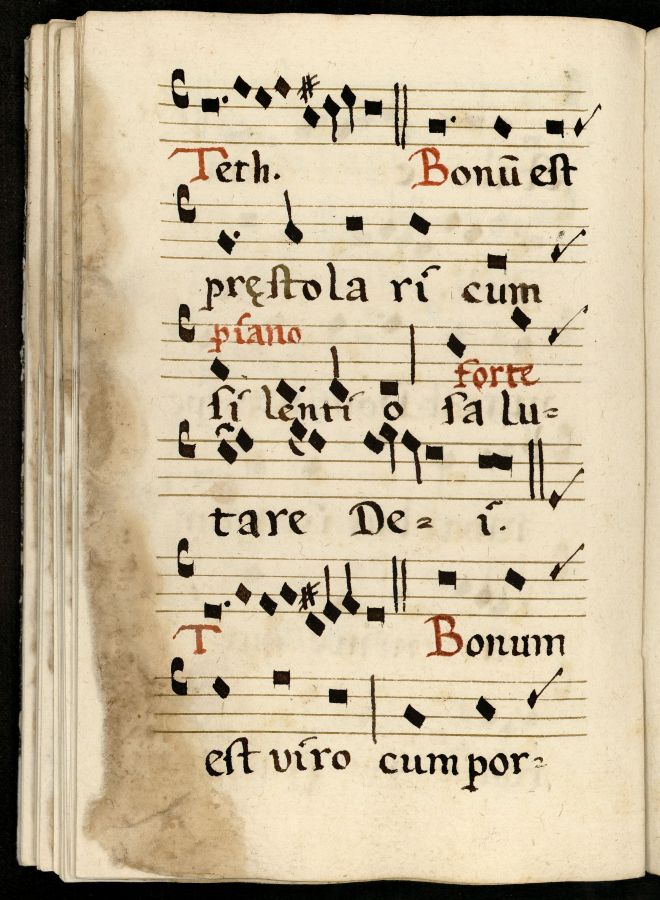 Teth. Bonū est
pręstola ri cum
piano
forte
si lenti o salu=
tare De= i.
T Bonum
est viro cum por=